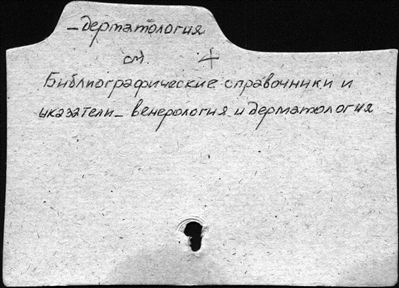 – дерматология
см. 4
Библиографические справочники и
указатели – венерология и дерматология